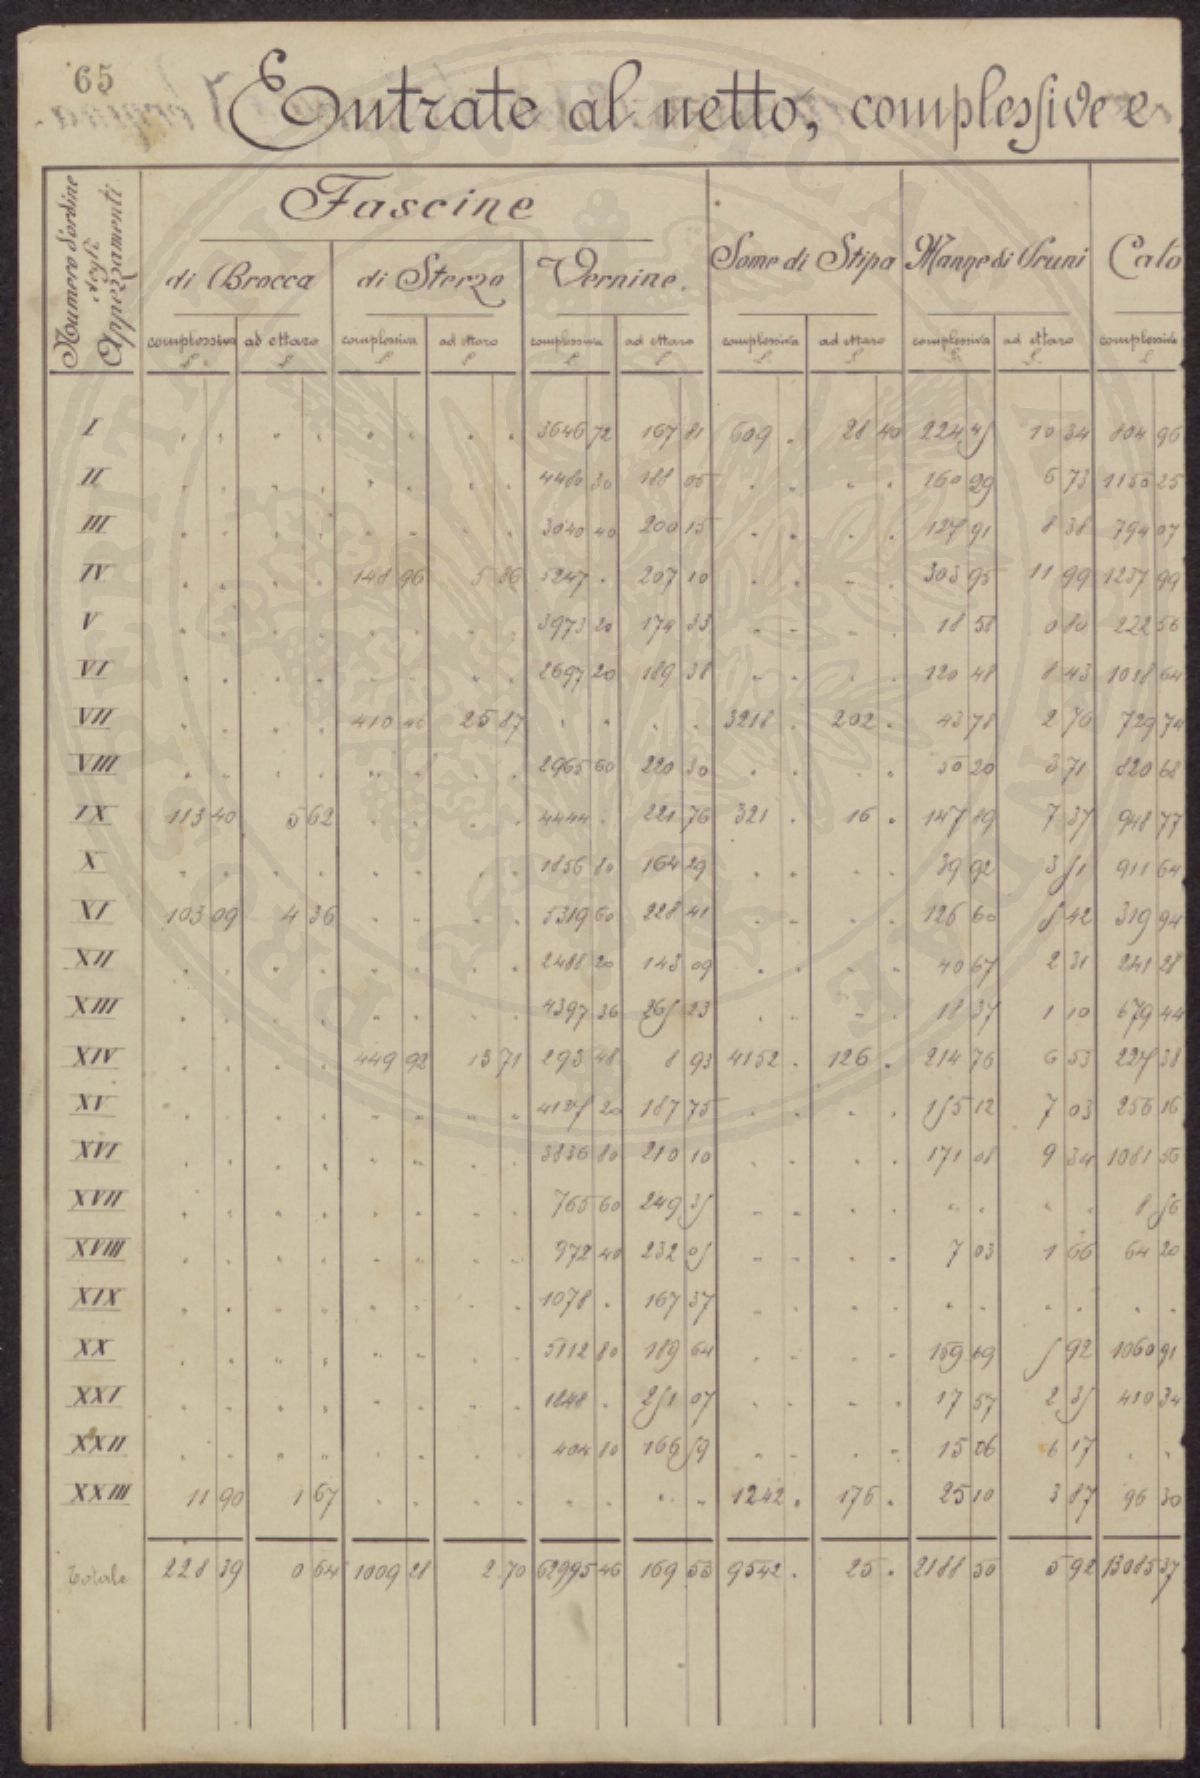 65
Entrate al netto, complessive e
Numero d'ordine degli Appezzamenti
Fascine
di Brocca di Sterzo Vernine. Some di Stipa Manne di Pruni Calo
complessiva ad ettaro complessiva ad ettaro complessiva ad ettaro complessiva ad ettaro complessiva ad ettaro complessiva
L. L. L L L L L L L. L. L
I . . . . . . . . 3646 72 167 81 609 . 28 40 224 45 10 34 804 96
II . . . . . . . . 4480 30 188 05 . . . . 160 29 6 73 1150 25
III . . . . . . . . 3040 40 200 15 . . . . 127 91 8 38 794 07
IV . . . . 148 96 5 86 5247 . 207 10 . . . . 303 95 11 99 1237 99
V . . . . . . . . 3973 20 174 33 . . . . 18 58 0 80 222 56
VI . . . . . . . . 2697 20 189 38 . . . . 120 48 8 43 1018 64
VII . . . . 410 40 25 87 . . . . 3218 . 202 . 43 78 2 76 729 74
VIII . . . . . . . . 2965 60 220 30 . . . . 50 20 3 71 820 68
IX 113 40 5 62 . . . . 4444 . 221 76 321 . 16 . 147 19 7 37 948 77
X . . . . . . . . 1856 80 164 29 . . . . 39 92 3 51 911 64
XI 103 09 4 36 . . . . 5319 60 228 41 . . . . 126 60 5 42 319 94
XII . . . . . . . . 2488 20 143 09 . . . . 40 67 2 31 241 28
XIII . . . . . . . . 4397 36 265 23 . . . . 18 37 1 10 679 44
XIV . . . . 449 92 13 71 293 48 8 93 4152 . 126 . 214 76 6 53 227 38
XV . . . . . . . . 4127 20 187 75 . . . . 155 12 7 03 256 16
XVI . . . . . . . . 3836 80 210 10 . . . . 171 08 9 34 1081 56
XVII . . . . . . . . 765 60 249 35 . . . . . . . . 8 56
XVIII . . . . . . . . 972 40 232 05 . . . . 7 03 1 66 64 20
XIX . . . . . . . . 1078 . 167 37 . . . . . . . . . .
XX . . . . . . . . 5112 80 189 64 . . . . 159 69 5 92 1060 91
XXI . . . . . . . . 1848 . 251 07 . . . . 17 57 2 35 410 34
XXII . . . . . . . . 404 10 166 59 . . . . 15 06 6 17 . .
XXIII 11 90 1 67 . . . . . . . . 1242 . 176 . 25 10 3 87 96 30
Totale 228 39 0 64 1009 28 2 70 62995 46 169 55 9542 . 25 . 2188 50 5 92 13085 37